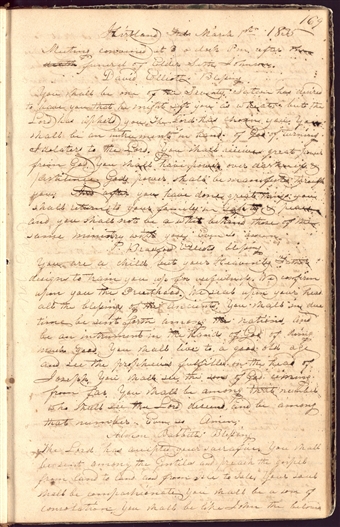 169
Kirtland March 1st 1835
Meeting convened at 3 o clock P.m. after the
death funeral of Elder Seth Johnson
David Elliott Blessing
You shall be one of the Seventy Satan has desires
to have you that he might sift you as wheat but the
Lord has chosen you. You
shall be an instrument in hand of God of turning
to the Lord, You shall receive great power
from God you shall have power over
God's power shall be manifested through
you, after you have done great things you
shall return to your family
and you shall not be a whit behind those of the
same ministry with you. Even so Amen
Elliott's blessing
You are a child but your Heavenly Father
designs to train you up for usefulness, We confirm
upon you the Priesthood, & seal upon your head
all the blessings of the You shall in due
time be sent forth among the nations, and
be an instrument in the hands of God of doing
much Good, You shall live to a good old age
and see the prophecies fulfilled on the head of
Joseph. You shall see the son of God coming
from far You shall be among that number
who shall see the Lord descend and be among
that number. Even so Amen.
Blessing
The Lord has accepted your You shall
be sent among the Gentiles and preach the Gospel
from land to land and from sea to sea. Your soul
shall be compassionate, you shall be a son of
consolation. You shall be like John the beloved